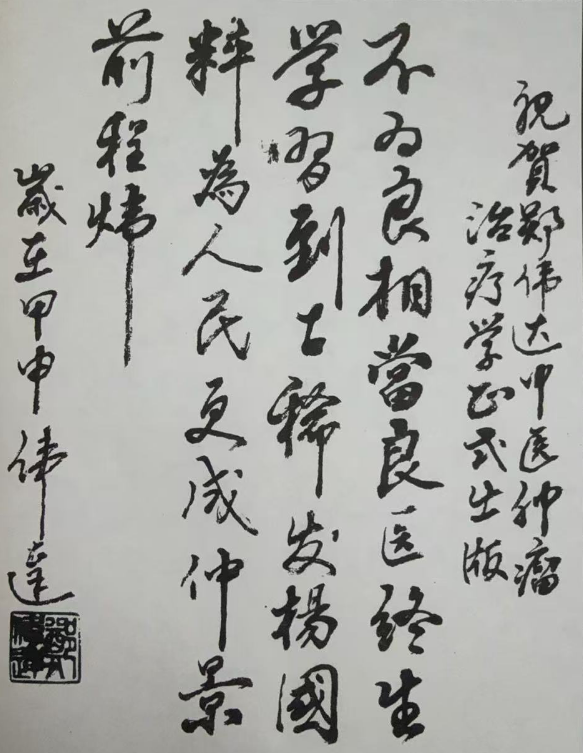 祝贺郑伟达中医肿瘤
治疗学正式出版
不为良相當良医终生
学习到七稀发楊國
粹為人民更成仲景
前程炜
歲在甲申伟達